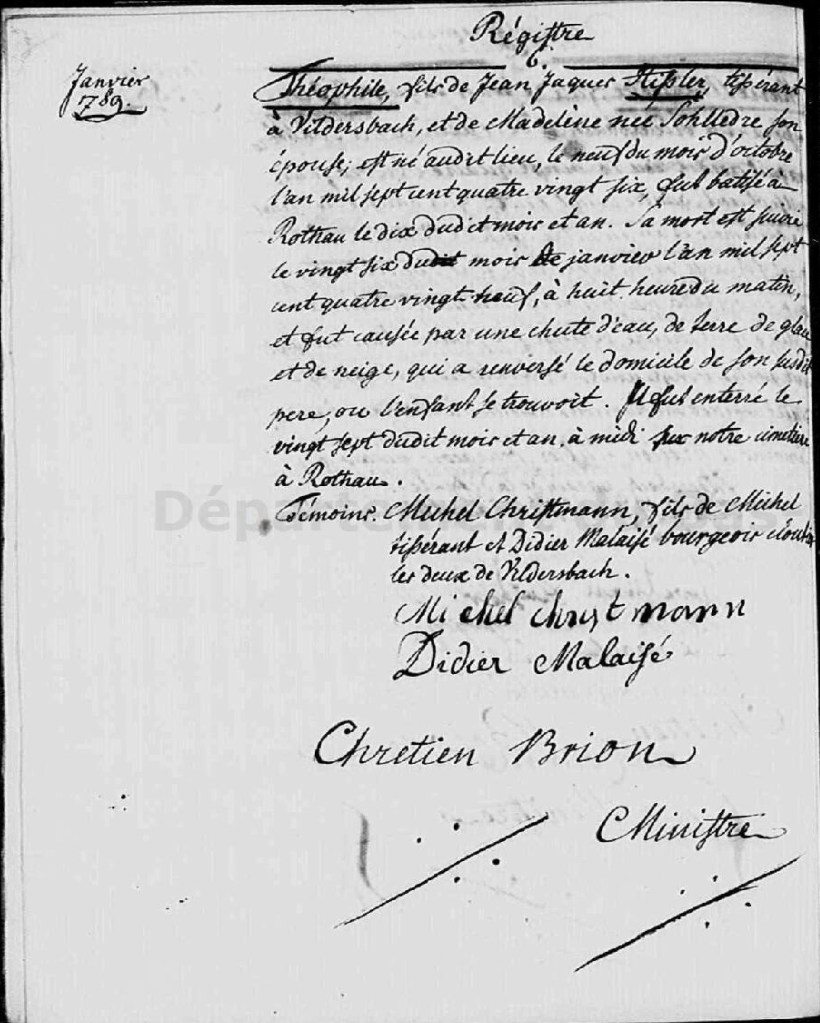 Régistre
6.
Janvier
1789.
Théophile, fils de Jean Jaques Hisler, tisserant
à Vildersbach, et de Madelène née Sohlledre son
épouse; est né audit lieu, le neuf du mois d'octobre
l'an mil sept cent quatre vingt six, fut batisé à
Rothau le dix dudit mois et an. Sa mort est
le vingt six dudit mois de janvier l'an mil sept
cent quatre vingt neuf, à huit heure du matin,
et fut causée par une chute d'eau, de terre de glace
et de neige, qui a renversé le domicile de son susdit
pere, ou l'enfant se trouvoit. Il fut enterré le
vingt sept dudit mois et an à midi sur notre cimetiere
à Rothau.
Témoins. Michel Christmann, fils de Michel
tisserant et Didier Malaisé bourgeois cloutier
les deux de Vildersbach.
Michel christmann
Didier Malaisé
Chretien Brion
Ministre